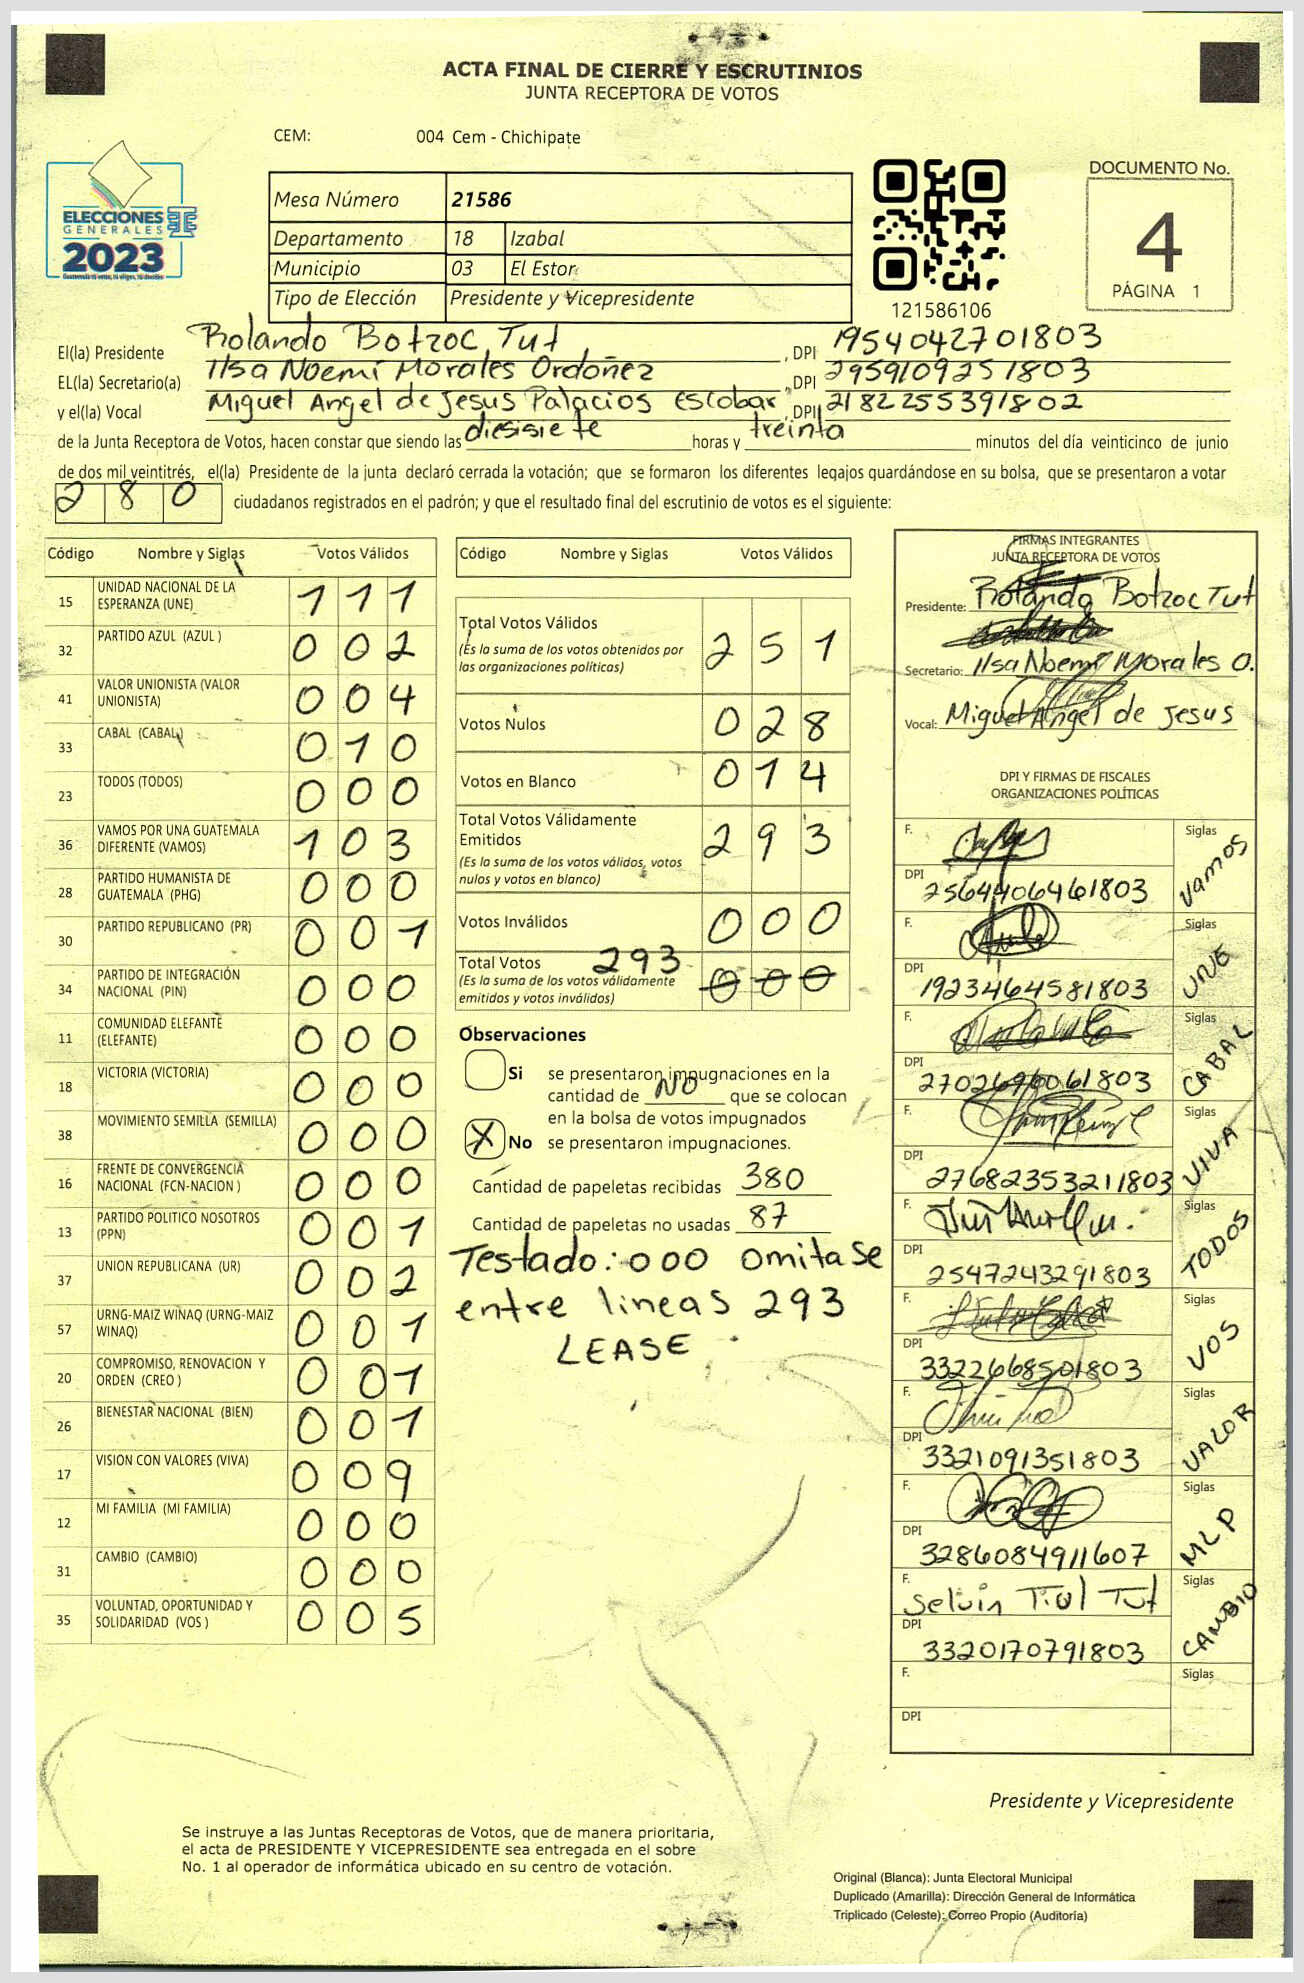 ACTA FINAL DE CIERRE Y ESCRUTINIOS
JUNTA RECEPTORA DE VOTOS
CEM: 004 Cem - Chichipate
ELECCIONES
GENERALES
2023
Mesa Número 21586
Departamento 18 Izabal
Municipio 03 El Estor
Tipo de Elección Presidente y Vicepresidente
121586106
DOCUMENTO No.
4
PÁGINA 1
El(la) Presidente Rolando Botzoc Tut, DPI 1954042701803
EL(la) Secretario(a) Ilsa Noemí Morales Ordoñez, DPI 2959109251803
y el(la) Vocal Miguel Angel de Jesus Palacios Escobar, DPI 2182255391802
de la Junta Receptora de Votos, hacen constar que siendo las diesisiete horas y treinta minutos del día veinticinco de junio
de dos mil veintitrés, el(la) Presidente de la junta declaró cerrada la votación; que se formaron los diferentes legajos guardándose en su bolsa, que se presentaron a votar
280 ciudadanos registrados en el padrón; y que el resultado final del escrutinio de votos es el siguiente:
Código Nombre y Siglas Votos Válidos
15 UNIDAD NACIONAL DE LA ESPERANZA (UNE) 111
32 PARTIDO AZUL (AZUL ) 002
41 VALOR UNIONISTA (VALOR UNIONISTA) 004
33 CABAL (CABAL) 010
23 TODOS (TODOS) 000
36 VAMOS POR UNA GUATEMALA DIFERENTE (VAMOS) 103
28 PARTIDO HUMANISTA DE GUATEMALA (PHG) 000
30 PARTIDO REPUBLICANO (PR) 001
34 PARTIDO DE INTEGRACIÓN NACIONAL (PIN) 000
11 COMUNIDAD ELEFANTE (ELEFANTE) 000
18 VICTORIA (VICTORIA) 000
38 MOVIMIENTO SEMILLA (SEMILLA) 000
16 FRENTE DE CONVERGENCIA NACIONAL (FCN-NACION ) 000
13 PARTIDO POLITICO NOSOTROS (PPN) 001
37 UNION REPUBLICANA (UR) 002
57 URNG-MAIZ WINAQ (URNG-MAIZ WINAQ) 001
20 COMPROMISO, RENOVACION Y ORDEN (CREO ) 001
26 BIENESTAR NACIONAL (BIEN) 001
17 VISION CON VALORES (VIVA) 009
12 MI FAMILIA (MI FAMILIA) 000
31 CAMBIO (CAMBIO) 000
35 VOLUNTAD, OPORTUNIDAD Y SOLIDARIDAD (VOS ) 005
Código Nombre y Siglas Votos Válidos
Total Votos Válidos 251
(Es la suma de los votos obtenidos por
las organizaciones políticas)
Votos Nulos 028
Votos en Blanco 014
Total Votos Válidamente
Emitidos 293
(Es la suma de los votos válidos, votos
nulos y votos en blanco)
Votos Inválidos 000
Total Votos 293 000
(Es la suma de los votos válidamente
emitidos y votos inválidos)
Observaciones
Si se presentaron impugnaciones en la
cantidad de NO que se colocan
en la bolsa de votos impugnados
X No se presentaron impugnaciones.
Cantidad de papeletas recibidas 380
Cantidad de papeletas no usadas 87
Testado: 000 omitase
entre lineas 293
LEASE
FIRMAS INTEGRANTES
JUNTA RECEPTORA DE VOTOS
Presidente: Rolando Botzoc Tut
Secretario: Ilsa Noemí Morales O.
Vocal: Miguel Angel de Jesus
DPI Y FIRMAS DE FISCALES
ORGANIZACIONES POLÍTICAS
F. Siglas Vamos
DPI 2564406461803
F. Siglas UNE
DPI 1923464581803
F. Siglas CABAL
DPI 2702696061803
F. Siglas VIVA
DPI 27682353211803
F. Siglas TODOS
DPI 2547243291803
F. Siglas VOS
DPI 3322668501803
F. Siglas VALOR
DPI 3321091351803
F. Siglas MLP
DPI 3286084911607
F. Selvin Tiul Tut Siglas CAMBIO
DPI 3320170791803
F. Siglas
DPI
Presidente y Vicepresidente
Se instruye a las Juntas Receptoras de Votos, que de manera prioritaria,
el acta de PRESIDENTE Y VICEPRESIDENTE sea entregada en el sobre
No. 1 al operador de informática ubicado en su centro de votación.
Original (Blanca): Junta Electoral Municipal
Duplicado (Amarilla): Dirección General de Informática
Triplicado (Celeste): Correo Propio (Auditoría)